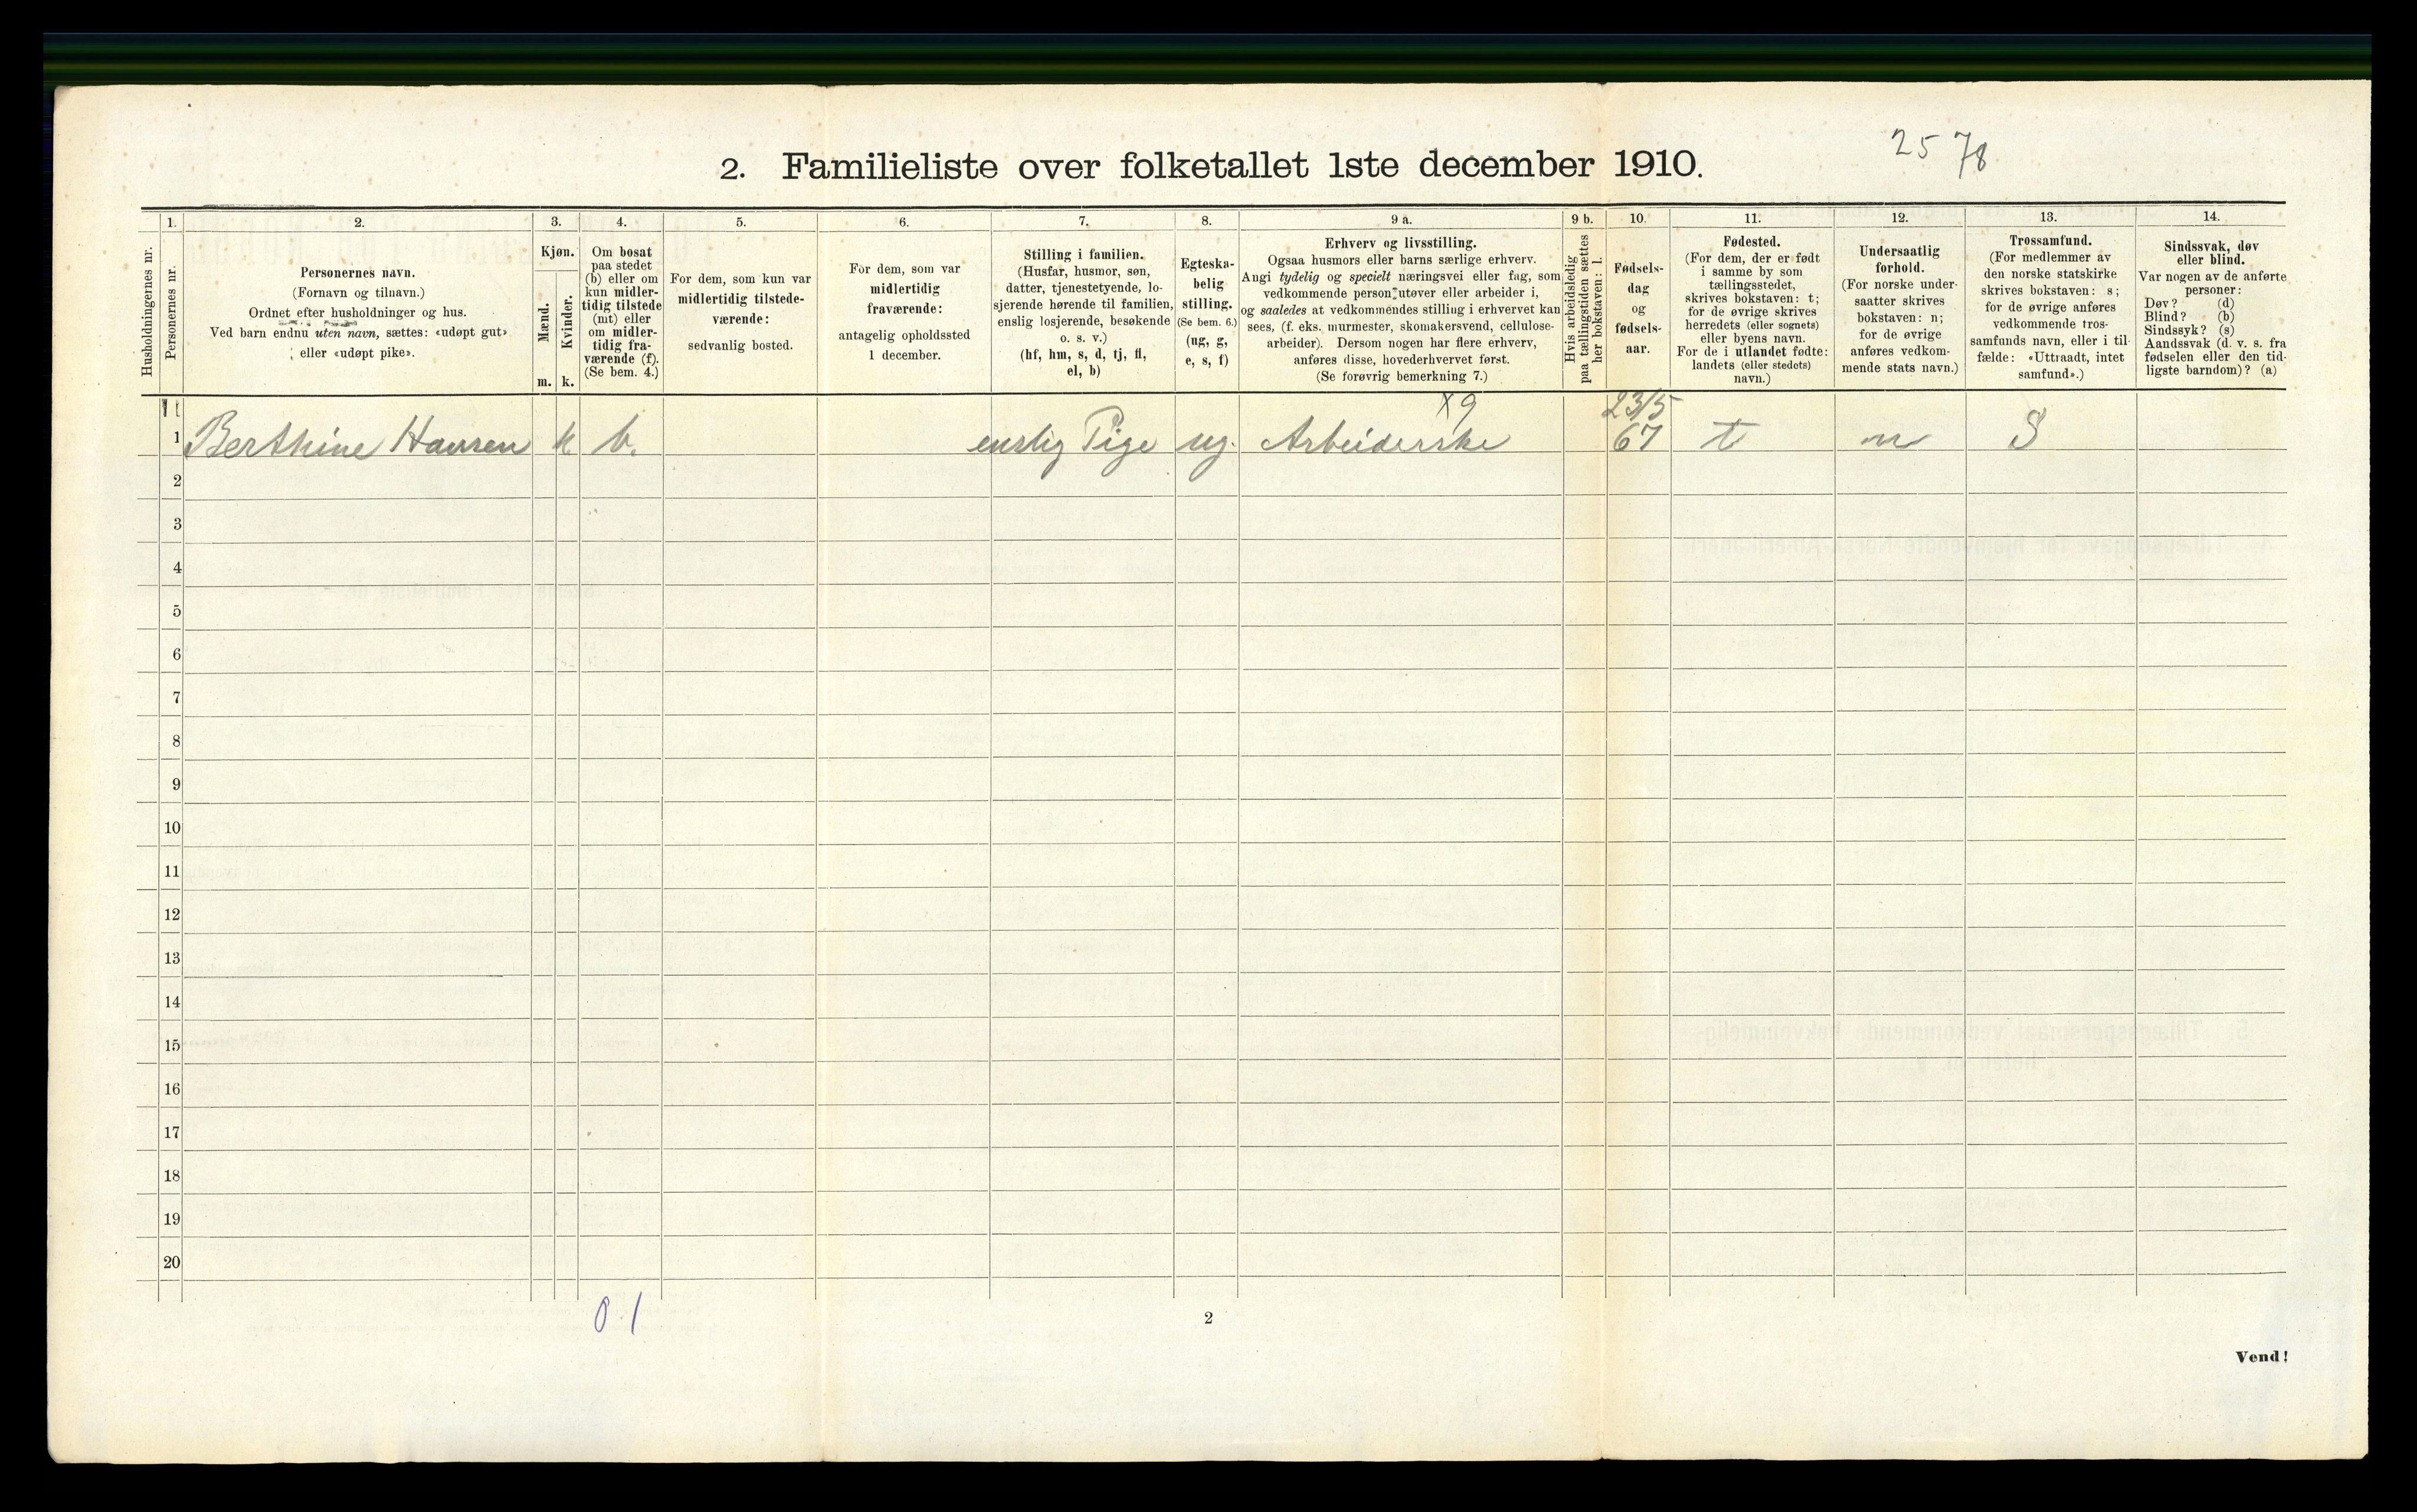 25 78
2. Familieliste over folketallet 1ste december 1910.
Husholdningernes nr.
1.
Personernes nr.
2.
Personernes navn.
(Fornavn og tilnavn.)
Ordnet efter husholdninger og hus.
Ved barn endnu uten navn, sættes: «udøpt gut»
eller «udøpt pike».
3.
Kjøn.
Mænd.
m.
Kvinder.
k.
4.
Om bosat
paa stedet
(b) eller om
kun midler-
tidig tilstede
(mt) eller
om midler-
tidig fra-
værende (f).
(Se bem. 4.)
5.
For dem, som kun var
midlertidig tilstede-
værende:
sedvanlig bosted.
6.
For dem, som var
midlertidig
fraværende:
antagelig opholdssted
1 december.
7.
Stilling i familien.
(Husfar, husmor, søn,
datter, tjenestetyende, lo-
sjerende hørende til familien,
enslig losjerende, besøkende
o. s. v.)
(hf, hm, s, d, tj, fl,
el, b)
8.
Egteska-
belig
stilling.
(Se bem. 6.)
(ug, g,
e, s, f)
9 a.
Erhverv og livsstilling.
Ogsaa husmors eller barns særlige erhverv.
Angi tydelig og specielt næringsvei eller fag, som
vedkommende person utøver eller arbeider i,
og saaledes at vedkommendes stilling i erhvervet kan
sees, (f. eks. murmester, skomakersvend, cellulose-
arbeider). Dersom nogen har flere erhverv,
anføres disse, hovederhvervet først.
(Se forøvrig bemerkning 7.)
9 b.
Hvis arbeidsledig
paa tællingstiden sættes
her bokstaven: l.
10.
Fødsels-
dag
og
fødsels-
aar.
11.
Fødested.
(For dem, der er født
i samme by som
tællingsstedet,
skrives bokstaven: t;
for de øvrige skrives
herredets (eller sognets)
eller byens navn.
For de i utlandet fødte:
landets (eller stedets)
navn.)
12.
Undersaatlig
forhold.
(For norske under-
saatter skrives
bokstaven: n;
for de øvrige
anføres vedkom-
mende stats navn.)
13.
Trossamfund.
(For medlemmer av
den norske statskirke
skrives bokstaven: s;
for de øvrige anføres
vedkommende tros-
samfunds navn, eller i til-
fælde: «Uttraadt, intet
samfund».)
14.
Sindssvak, døv
eller blind.
Var nogen av de anførte
personer:
Døv? (d)
Blind? (b)
Sindssyk? (s)
Aandssvak (d. v. s. fra
fødselen eller den tid-
ligste barndom)? (a)
x9 23/5
1 Berthine Hansen k b. enslig Pige ug. Arbeiderske 67 t n S
2
3
4
5
6
7
8
9
10
11
12
13
14
15
16
17
18
19
20
0 1
2
Vend!